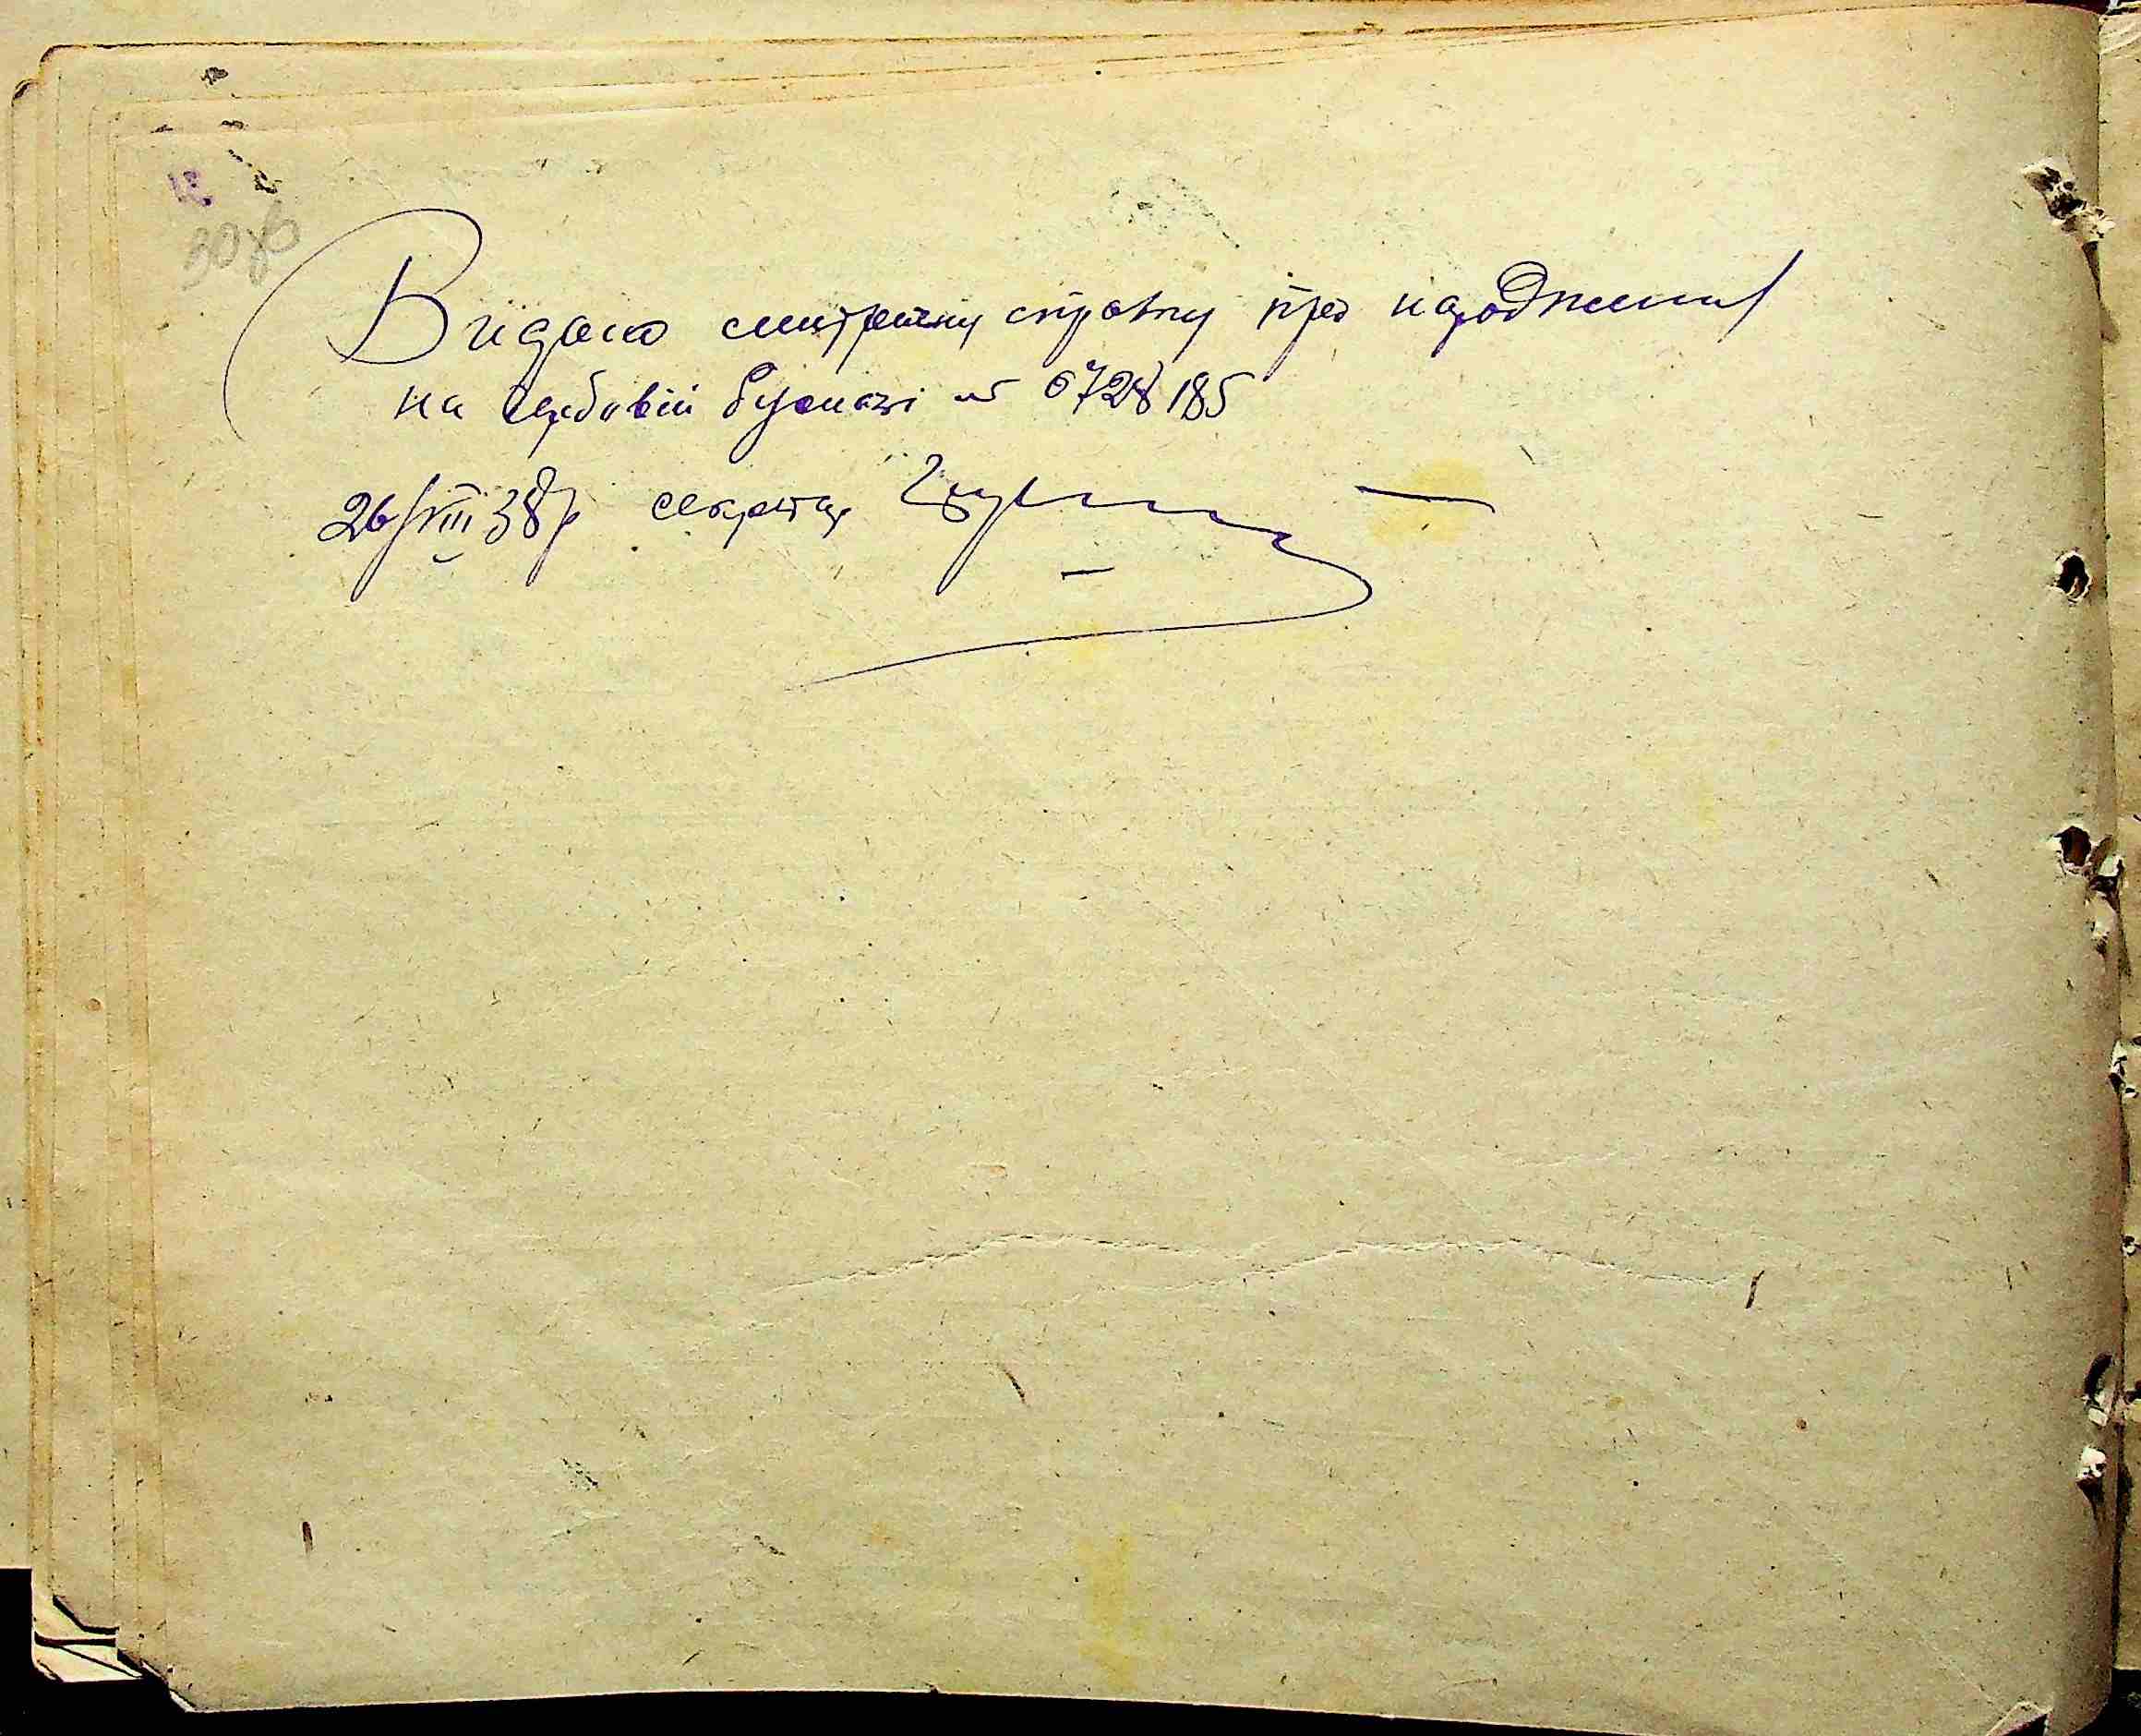 Видано метричну справку про народження
на гербовій бумазі № 0728185
26/VIII 38р секретар